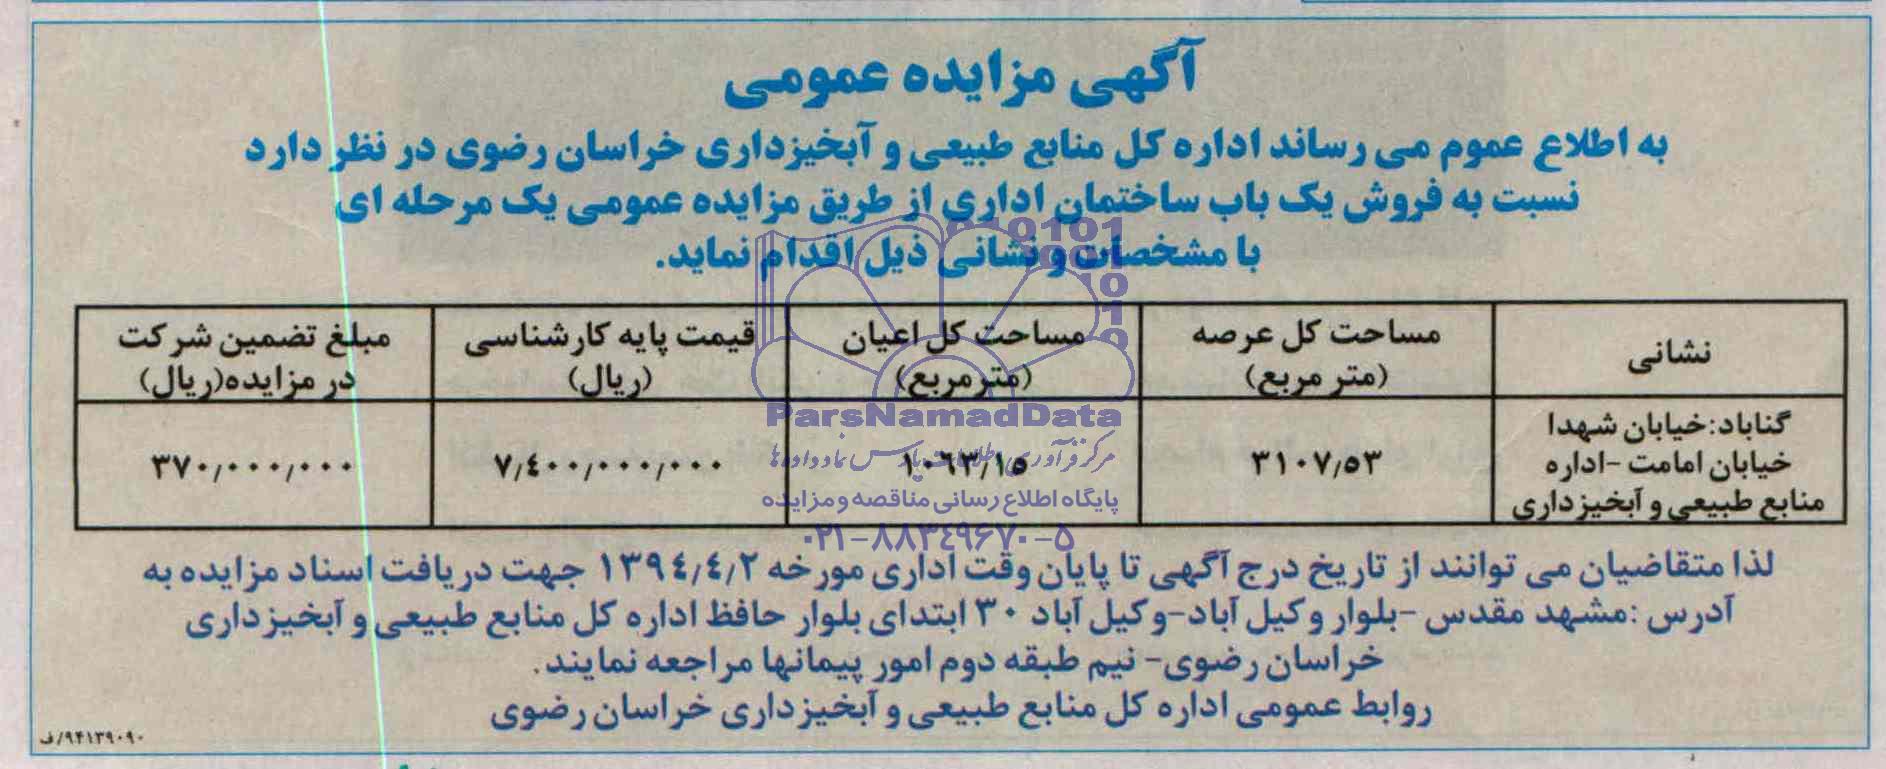 آگهی مزایده عمومی
به اطلاع عموم می رساند اداره کل منابع طبیعی و آبخیزداری خراسان رضوی در نظر دارد
نسبت به فروش یک باب ساختمان اداری از طریق مزایده عمومی یک مرحله ای
با مشخصات و نشانی ذیل اقدام نماید.
نشانی
مساحت کل عرصه
(متر مربع)
مساحت کل اعیان
(مترمربع)
قیمت پایه کارشناسی
(ریال)
مبلغ تضمین شرکت
در مزایده(ریال)
گناباد:خیابان شهدا
خیابان امامت -اداره
منابع طبیعی و آبخیزداری
۳۱۰۷/۵۳
۱۰۶۳/۱۵
۷/٤۰۰/۰۰۰/۰۰۰
۳۷۰/۰۰۰/۰۰۰
0 0101
0001
10
10
ParsNamadData
مرکز فرآوری اطلاعات پارس نماد داده ها
پایگاه اطلاع رسانی مناقصه و مزایده
۰۲۱-۸۸۳٤۹۶۷۰-۵
لذا متقاضیان می توانند از تاریخ درج آگهی تا پایان وقت اداری مورخه ۱۳۹٤/٤/۲ جهت دریافت اسناد مزایده به
آدرس :مشهد مقدس -بلوار وکیل آباد-وکیل آباد ۳۰ ابتدای بلوار حافظ اداره کل منابع طبیعی و آبخیزداری
خراسان رضوی- نیم طبقه دوم امور پیمانها مراجعه نمایند.
روابط عمومی اداره کل منابع طبیعی و آبخیزداری خراسان رضوی
۹۴۱۳۹۰۹۰/ف